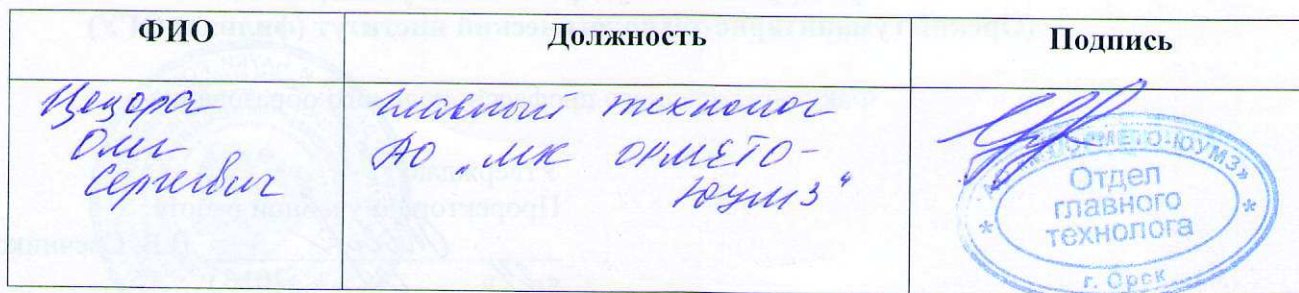 ФИО Должность Подпись
Олег
Сергеевич
главный технолог
АО "МК ОРМЕТО-
ЮУМЗ"
ОРМЕТО-ЮУМЗ»
Отдел
главного
технолога
г. Орск